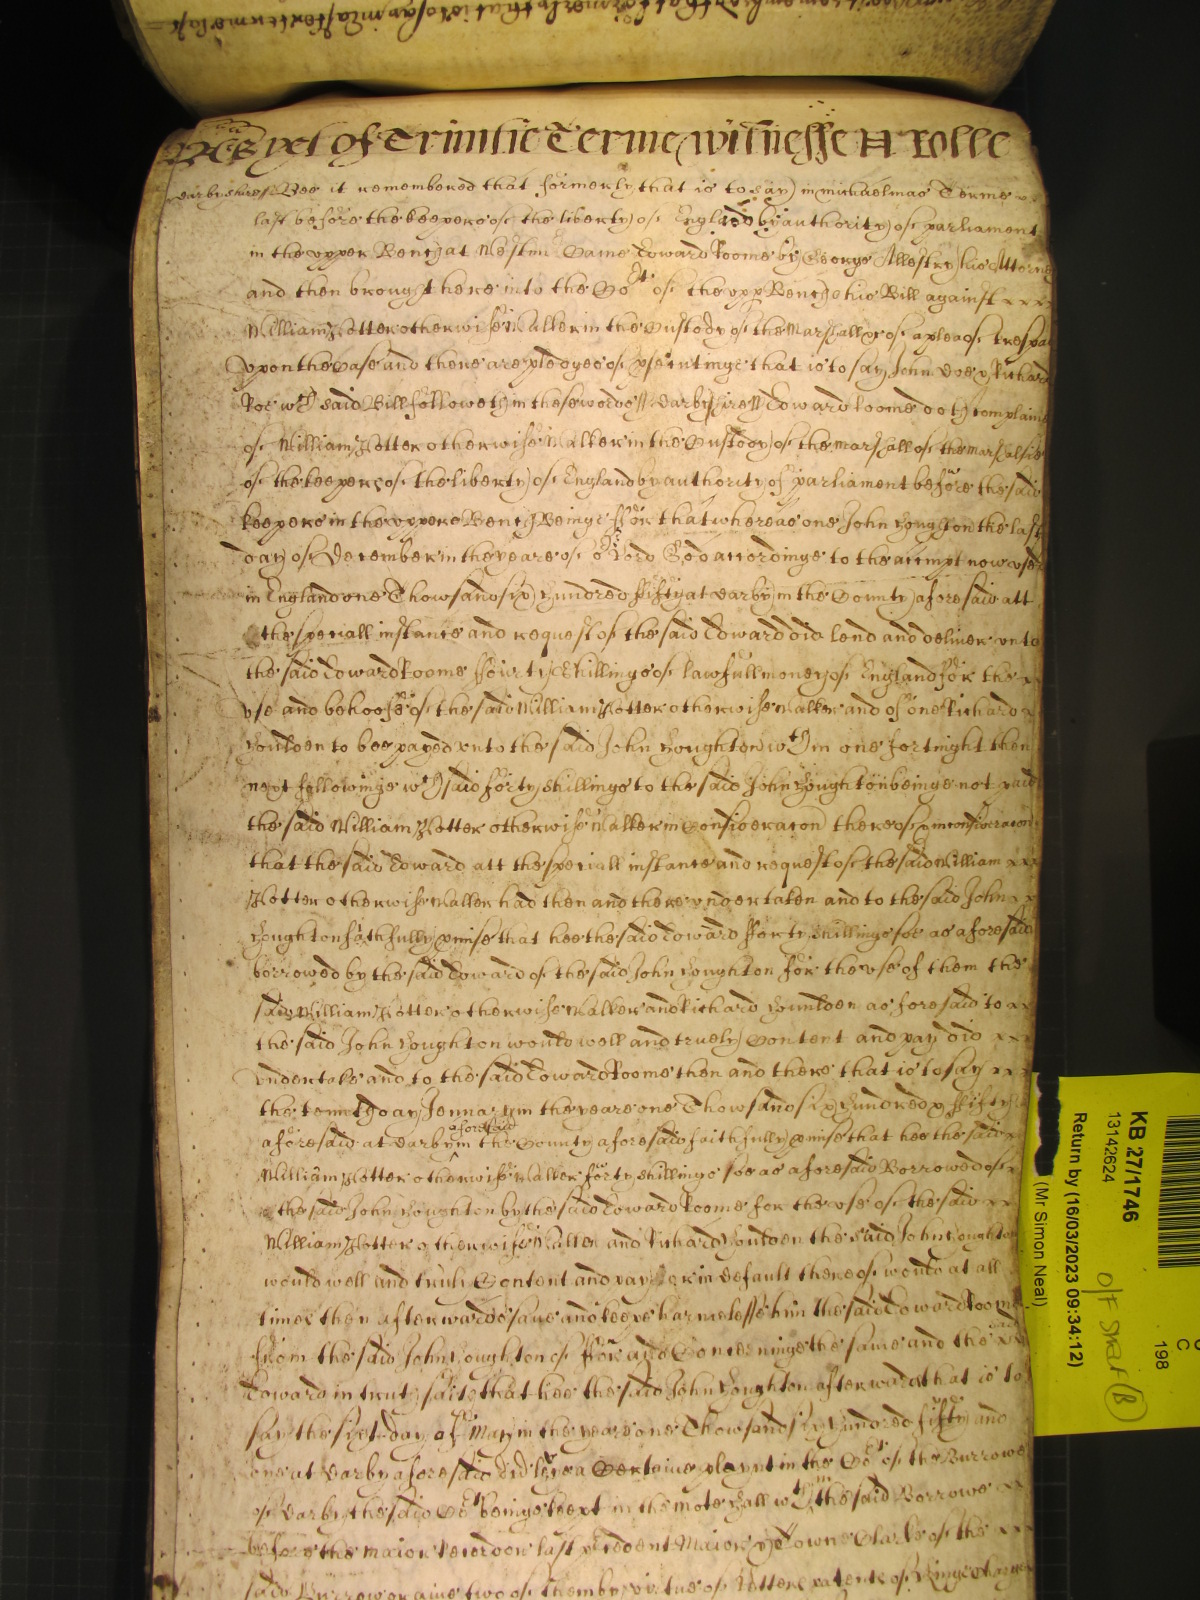 As yet of Trinitie Terme witnesse H Rolle
Darbyshire Bee it remembered that formerly that is to say in michaelmas Terme
last before the keepers of the liberty of England by authority of parliament
in the upper Bench at Westmr Came Edward Roome by George Allestry his Attorney
and then brought here into the Cort of the uppr Bench his Bill against
William Potter otherwise Walker in the Custody of the Marshall &c of a plea of trespas
upon the Case and there are pledges of psecutinge that is to say John Doe & Richard
Roe wch said Bill followeth in these wordes Darbyshire Edward Roome doth complaine
of William Potter otherwise Walker in the Custody of the marshall of the marshalsie
of the keepers of the liberty of England by authority of parliament before the said
keepers in the uppere Bench Beinge ffor that whereas one John Houghton the last
day of December in the yeare of or Lord God accordinge to the accompt now used
in England one Thowsand six hundred fifty at Darby in the County aforesaid att
the speciall instance and request of the said Edward did lend and deliver unto
the said Edward Roome fforty Shillings of lawfull money of England for the
use and behoofe of the said William Potter otherwise Walker and of one Richard
Houlden to bee payed unto the said John Houghton wthin one fortnight then
next followinge wch said forty shillings to the said John Houghton beinge not paid
the said William Potter otherwise Walker in Consideracon thereof & in consideracon
that the said Edward att the speciall instance and request of the said William
Potter otherwise Walker had then and there undertaken and to the said John
Houghton faithfully pmise that hee the said Edward fforty shillings soe as aforesaid
borrowed by the said Edward of the said John Houghton for the use of them the
said William Potter otherwise Walker and Richard Houlden as foresaid to
the said John Houghton would well and truely Content and pay did
undertake and to the said Edward Roome then and there that is to say
the tenth day Jennary in the yeare one Thowsand six hundred & fifty
aforesaid at Darby aforesaid in the County aforesaid faithfully pmise that hee the said
William Potter otherwise Walker forty shillings soe as aforesaid Borrowed of
the said John Houghton by the said Edward Roome for the use of the said
William Potter otherwise Walker and Richard Houlden the said John Houghton
would well and truli Content and pay or in default thereof would at all
times then afterwardes save and keepe harmelesse him the said Edward Roome
from the said John Houghton of ffor and Concerninge the same and the said
Edward in truth saith that hee the said John Houghton afterwards that is to
say the sixt day of May in the yeare one Thowsand six hundred fifty and
one at Darby aforesaid did levie a Certaine playnt in the Cort of the Burrowe
of Darby the said Cort beinge kept in the mote hall wthin the said Borrowe
before the maior Recorder last precedent Maior & Towne Clarke of the
said Burrow or anie two of them by virtue of letters patents of Kinge Charles
KB 27/1746
13142624
Return by (16/03/2023 09:34:12)
(Mr Simon Neal)
198